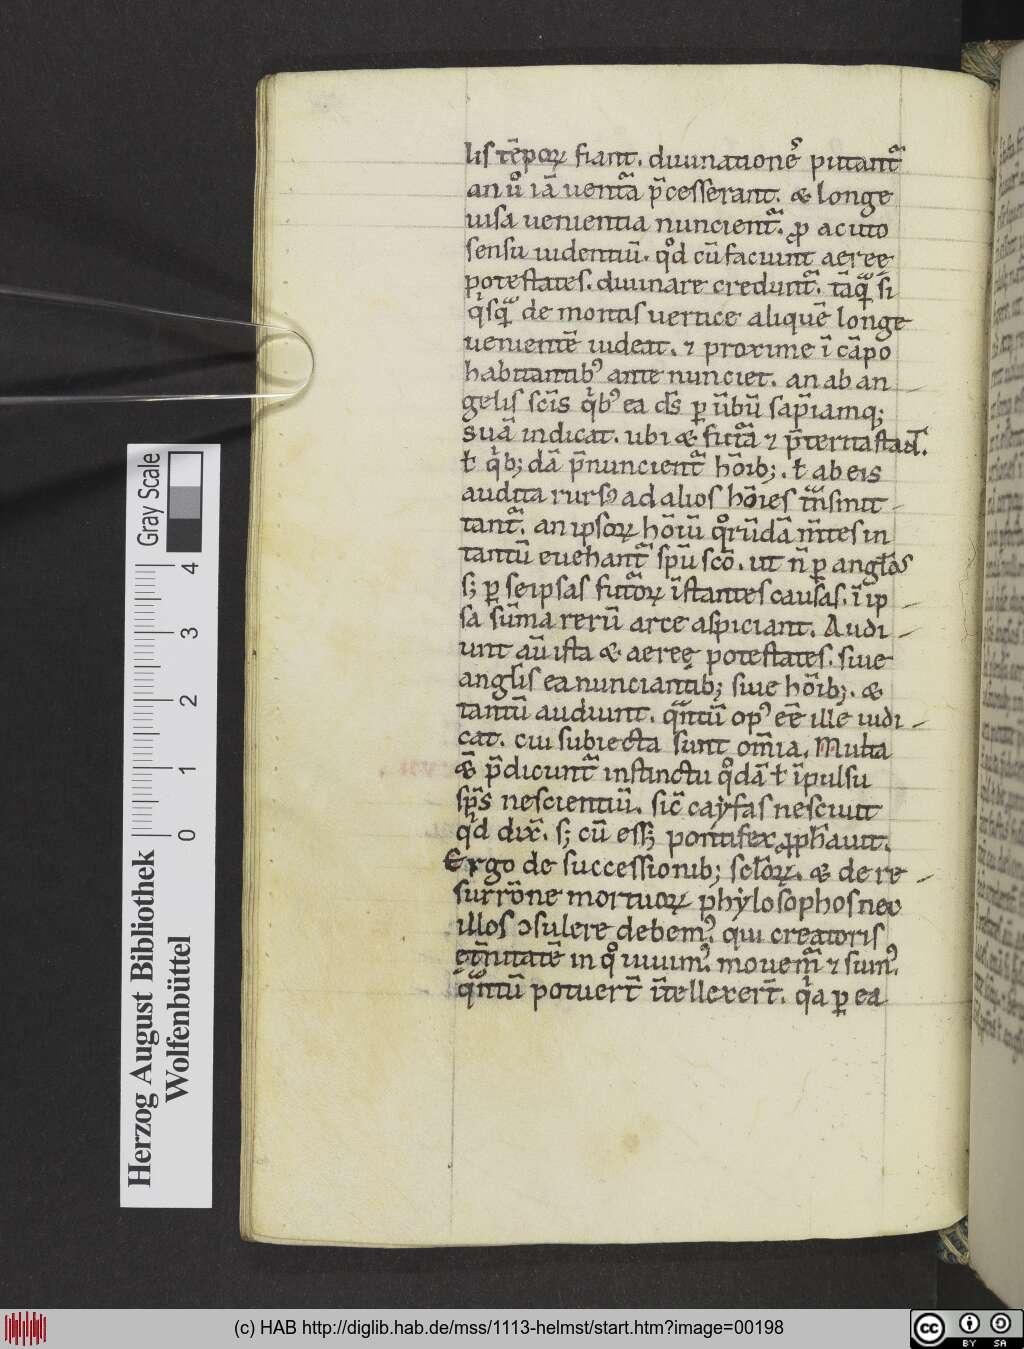 lis tēporꝝ fiant. diuinationes putant᷑
an u̾o iā uentᷓa p̄cesserant. & longe
uisa uenientia nuncient᷑. ꝓ acuto
sensu uidentiū. qd̾ cū faciunt aereę
potestates. diuinare credunt᷑. tāq̄ᷓ si
q̾sqᷓ de montis uertice aliquē longe
uenientē uideat. ⁊ proxime ī cāpo
habitantibꝰ ante nunciet. an ab an
gelis sc̄is q̾bꝰ ea d̄s ꝑ ūbū sapīamq;
suā indicat. ubi & futᷓa ⁊ p̄terita stant.
ł q̾b; dā p̄nuncient᷑ hōib;. ł ab eis
audita rursꝰ ad alios hōies tᷓnsmit
tant᷑. an ipsorꝝ hōiū qͦrūdā m̄tes in
tantū euehant᷑ sp̄u scō. ut n̄ ꝑ angłos
s; ꝑ seipsas futᷓorꝝ īstantes causas. ī ip
sa sūma rerū arce aspiciant. Audi
unt aū ista & aereę potestates. siue
angłis ea nunciantib; siue hōib;. &
tantū audiunt. qᷓntū opꝰ eē ille iudi
cat. cui subiecta sunt om̄ia. Multa
& p̄dicunt᷑ instinctu qͦdā ł īpulsu
sp̄s nescientiū. sic̄ caẏfas nesciuit
qd̾ dix̄. s; cū ess; pontifex ꝓph̄auit.
Ergo de successionib; scłorꝝ. & de re
surrōne mortuorꝝ phẏlosophos nec
illos ↄsulere debemꝰ. qui creatoris
et̄nitatē in qͦ uiuimꝰ. mouem᷑ ⁊ sumꝰ.
qᷓntū potuer̄t ītellexer̄t. q̾a ꝑ ea
Herzog August Bibliothek
Wolfenbüttel
Gray Scale
0 1 2 3 4
(c) HAB http://diglib.hab.de/mss/1113-helmst/start.htm?image=00198
cc BY SA